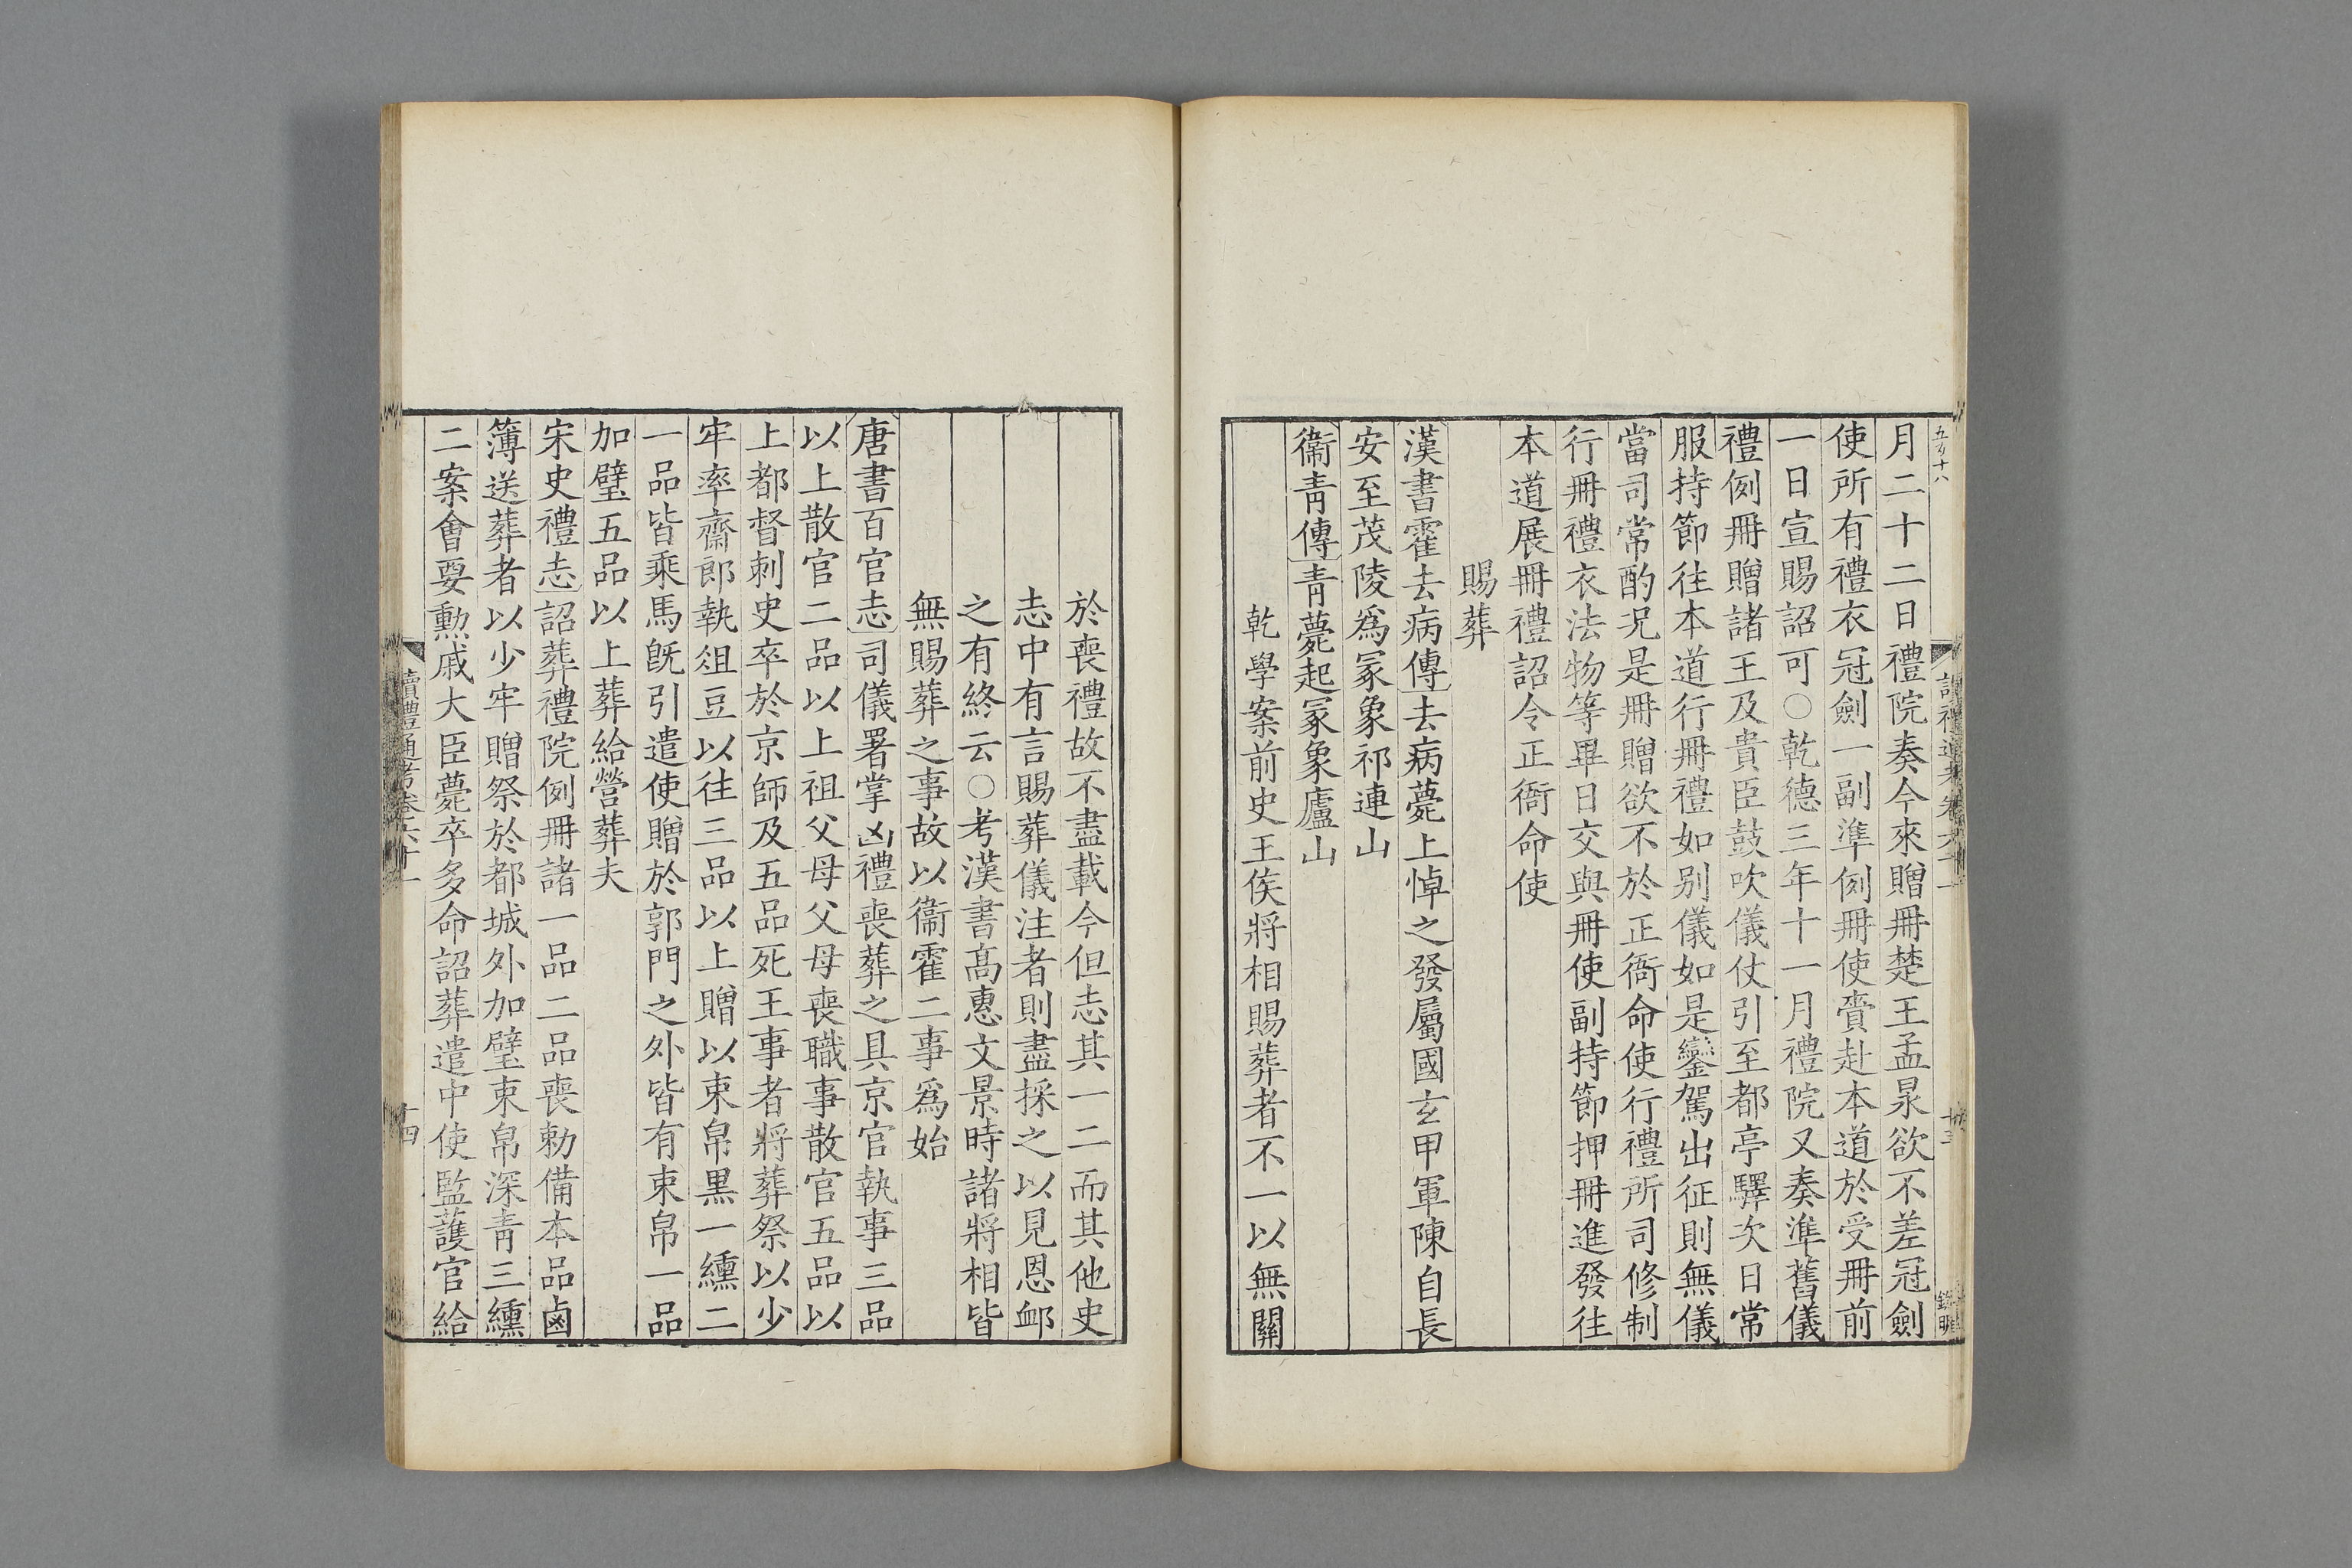 月二十二日禮院奏今來贈冊楚王孟昶欲不差冠劍
使所有禮衣冠劍一副準例冊使賫赴本道於受冊前
一日宣賜詔可○乾德三年十一月禮院又奏準舊儀
禮例冊贈諸王及貴臣鼓吹儀仗引至都亭驛次日常
服持節往本道行冊禮如别儀如是鑾駕出征則無儀
當司常酌況是冊贈欲不於正衙命使行禮所司修制
行冊禮衣法物等畢日交與冊使副持節押冊進發往
本道展冊禮詔令正衙命使
賜葬
漢書霍去病傳去病薨上悼之發屬國玄甲軍陳自長
安至茂陵爲冢象祁連山
衞青傳青薨起冢象廬山
乾學案前史王侯將相賜葬者不一以無關
於喪禮故不盡載今但志其一二而其他史
志中有言賜葬儀注者則盡採之以見恩卹
之有終云○考漢書高惠文景時諸將相皆
無賜葬之事故以衞霍二事爲始
唐書百官志司儀署掌凶禮喪葬之具京官執事三品
以上散官二品以上祖父母父母喪職事散官五品以
上都督刺史卒於京師及五品死王事者將葬祭以少
牢率齋郎執俎豆以往三品以上贈以束帛黑一纁二
一品皆乘馬旣引遣使贈於郭門之外皆有束帛一品
加璧五品以上葬給營葬夫
宋史禮志詔葬禮院例冊諸一品二品喪勅備本品鹵
簿送葬者以少牢贈祭於都城外加璧束帛深青三纁
二案會要勲戚大臣薨卒多命詔葬遣中使監護官給
讀禮通考卷六十一
十四